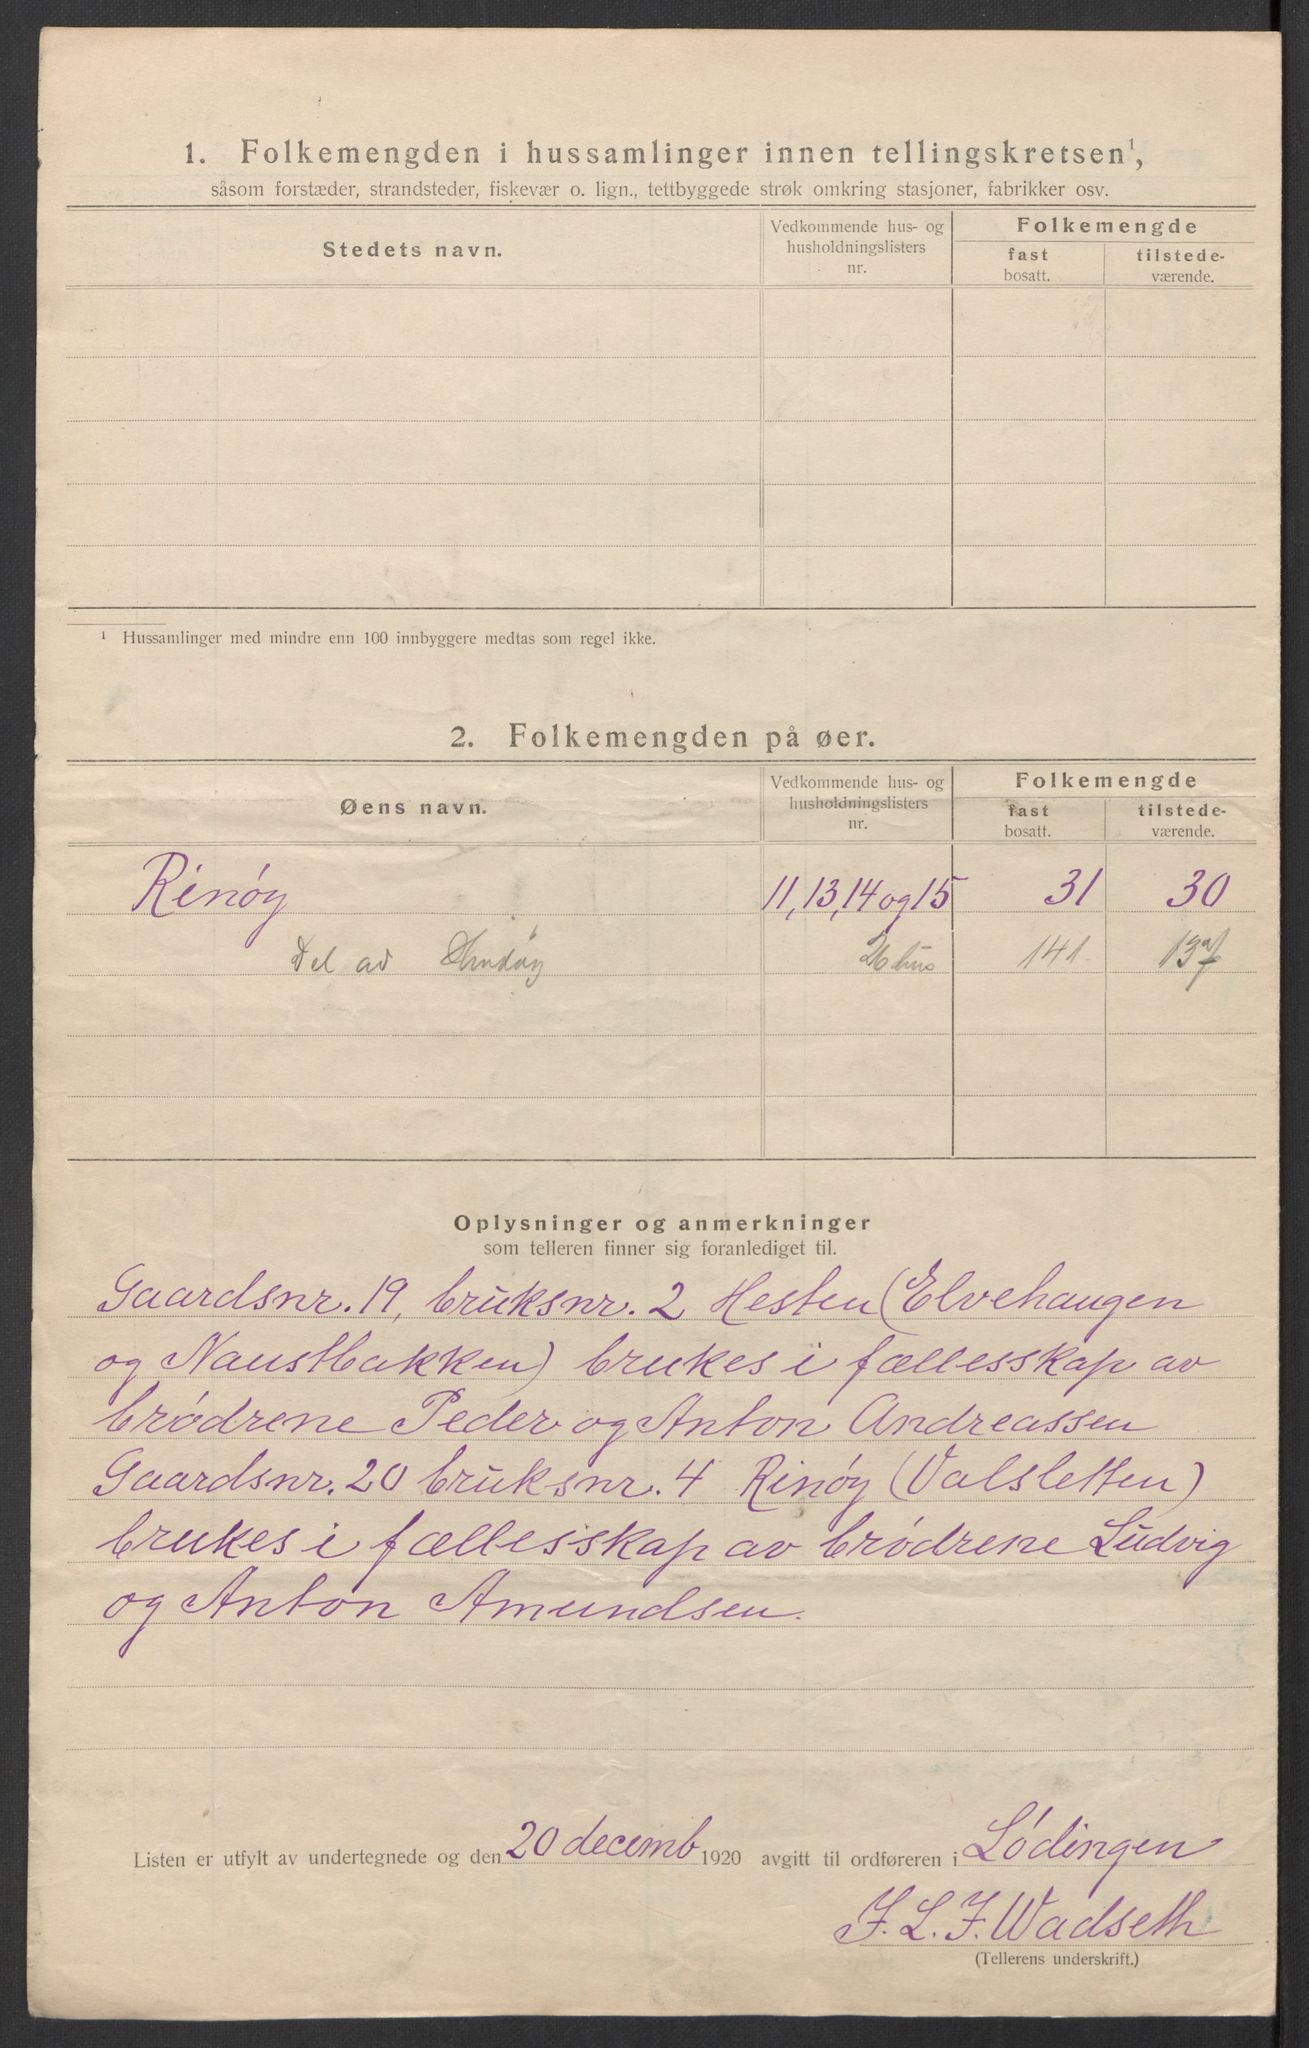 1. Folkemengden i hussamlinger innen tellingskretsen¹,
såsom forstæder, strandsteder, fiskevær o. lign., tettbyggede strøk omkring stasjoner, fabrikker osv.
Stedets navn.
Vedkommende hus- og
husholdningslisters
nr.
Folkemengde
fast
bosatt.
tilstede-
værende.
¹ Hussamlinger med mindre enn 100 innbyggere medtas som regel ikke.
2. Folkemengden på øer.
Øens navn.
Vedkommende hus- og
husholdningslisters
nr.
Folkemengde
fast
bosatt.
tilstede-
værende.
Rinöy 11, 13, 14 og 15 31 30
Del av Hindöy 26 hus 141
Oplysninger og anmerkninger
som telleren finner sig foranlediget til.
Gaardsnr. 19, bruksnr. 2 Hesten (Elvehaugen
og Naustbakken) brukes i fællesskap av
brödrene Peder og Anton Andreassen
Gaardsnr. 20 bruksnr. 4 Rinöy (Valsletten)
brukes i fællesskap av brödrene Ludvig
og Anton Amundsen.
Listen er utfylt av undertegnede og den 20 decemb 1920 avgitt til ordføreren i Lödingen
J. L. J. Wadseth
(Tellerens underskrift.)